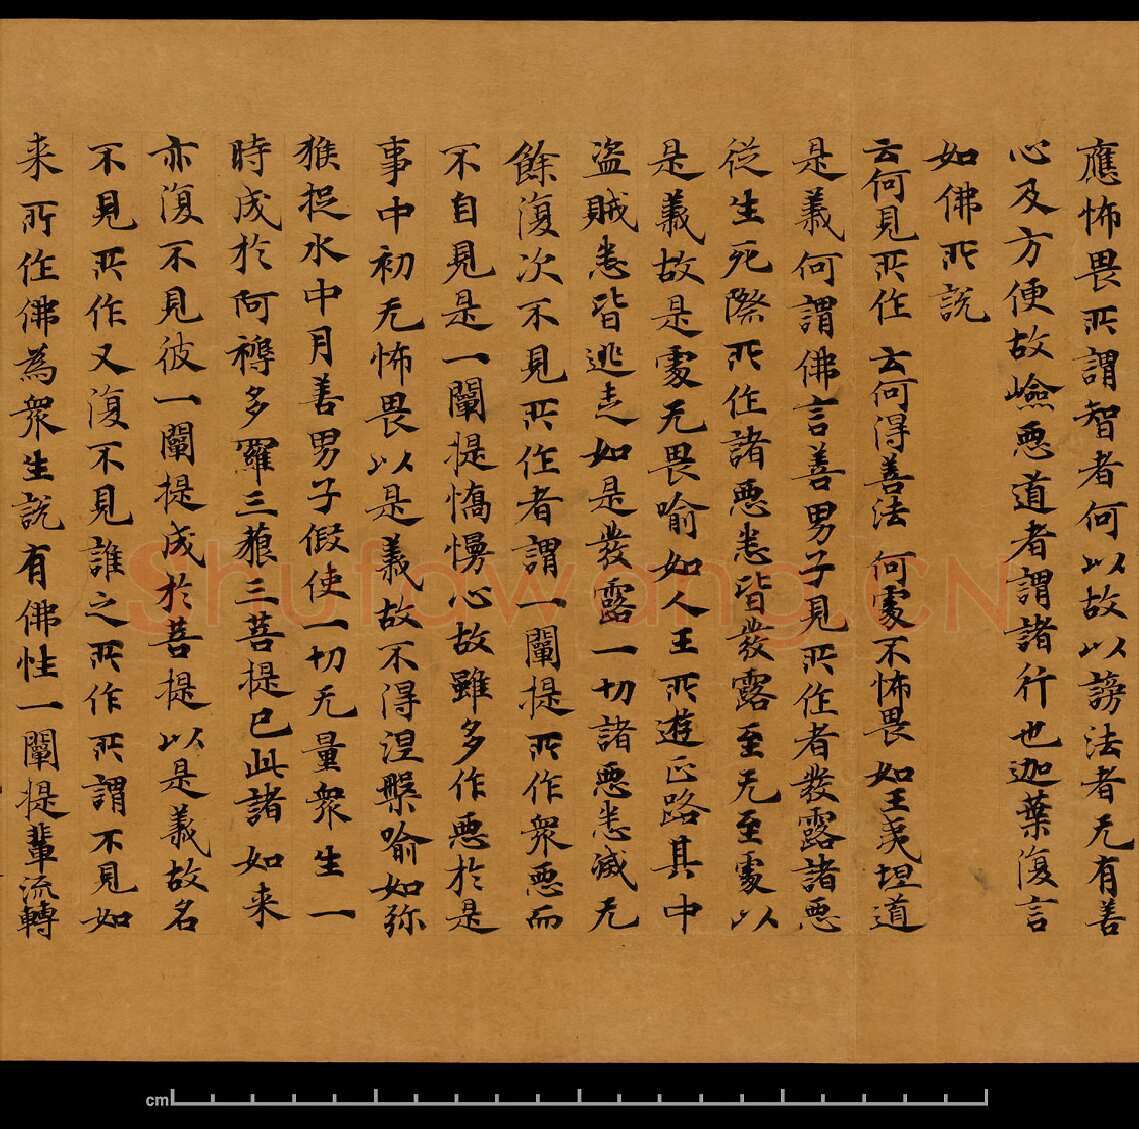 應怖畏所謂智者何以故以謗法者无有善
心及方便故嶮惡道者謂諸行也迦葉復言
如佛所說
云何見所作 云何得善法 何處不怖畏 如王夷坦道
是義何謂佛言善男子見所作者發露諸惡
從生死際所作諸惡悉皆發露至无至處以
是義故是處无畏喻如人王所遊正路其中
盜賊悉皆逃走如是發露一切諸惡悉滅无
餘復次不見所作者謂一闡提所作衆惡而
不自見是一闡提憍慢心故雖多作惡於是
事中初无怖畏以是義故不得涅槃喻如弥
猴捉水中月善男子假使一切无量衆生一
時成於阿耨多羅三藐三菩提已此諸如来
亦復不見彼一闡提成於菩提以是義故名
不見所作又復不見誰之所作所謂不見如
来所作佛為衆生說有佛性一闡提輩流轉
Shufawang.CN
cm